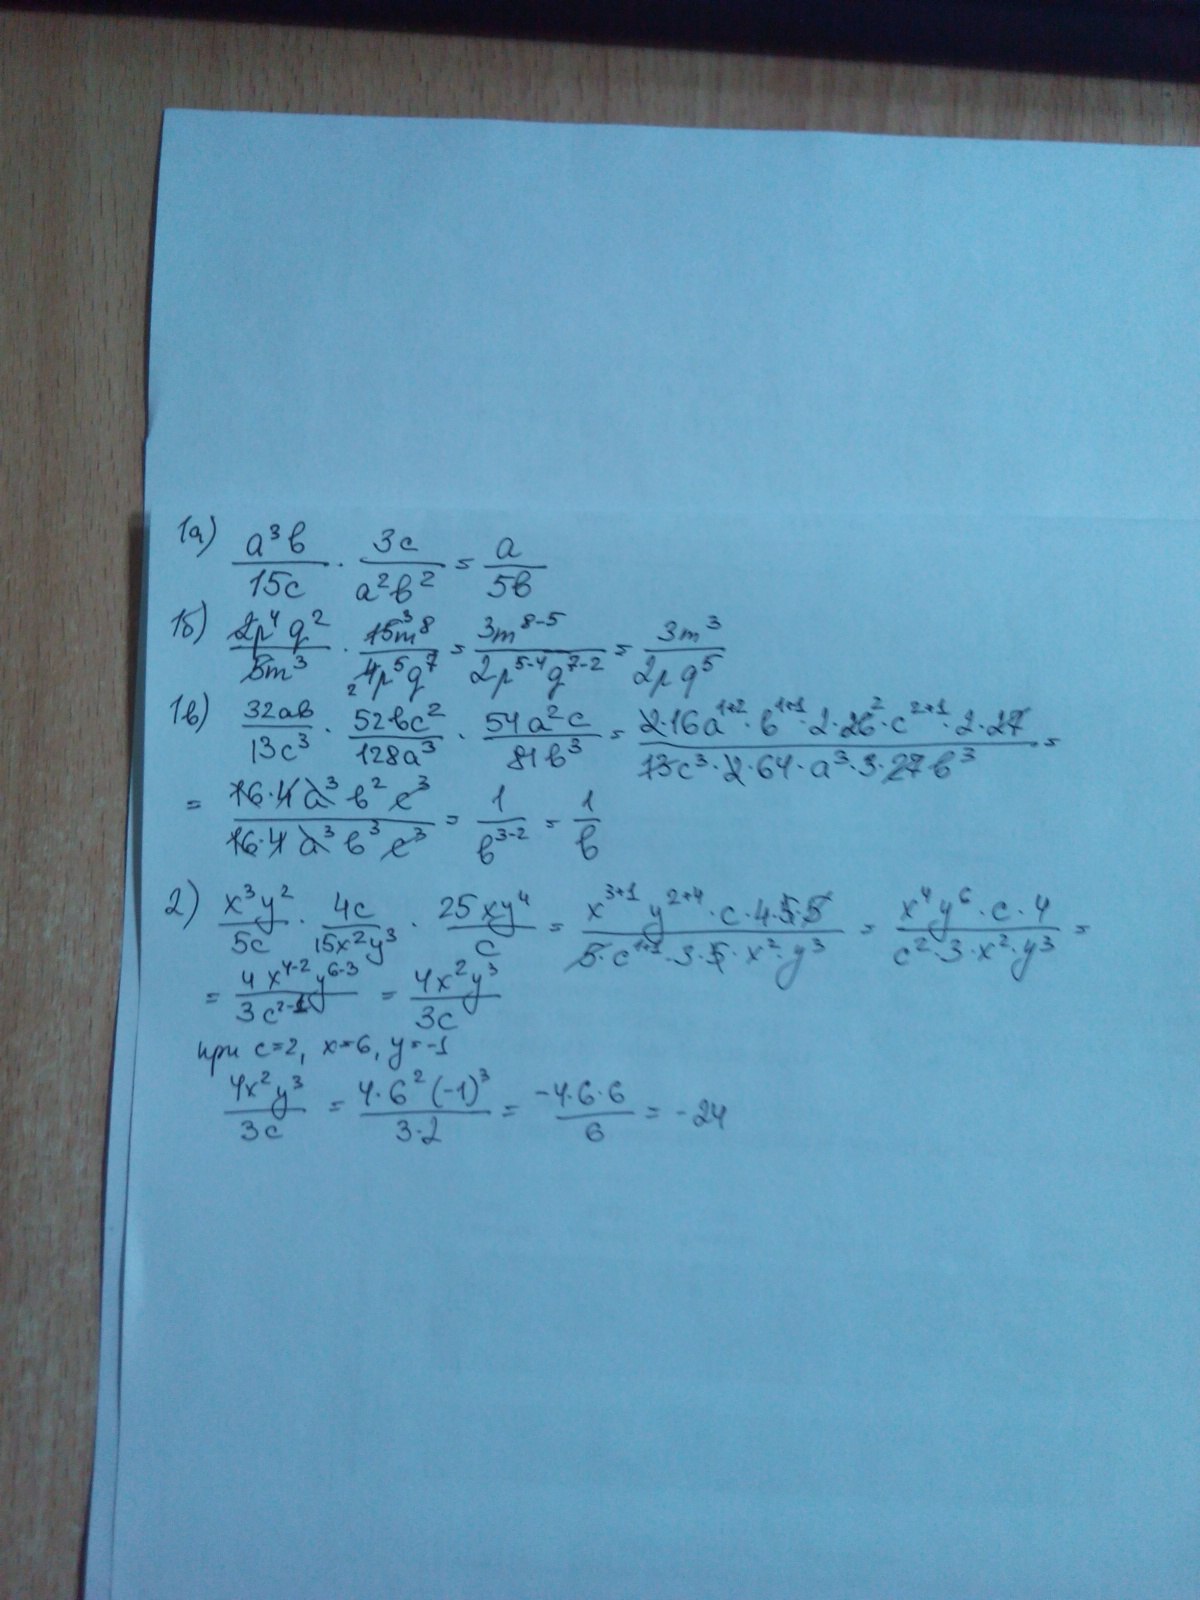 1а) a³b/15c · 3c/a²b² = a/5b
1б) 2p⁴q²/5m³ · 15³m⁸/₂4p⁵q⁷ = 3m⁸⁻⁵/2p⁵⁻⁴q⁷⁻² = 3m³/2pq⁵
1в) 32ab/13c³ · 52bc²/128a³ · 54a²c/81b³ = 2·16a¹⁺²·b¹⁺¹·2·26²·c²⁺¹·2·27/13c³·2·64·a³·3·27b³ =
= 16·4a³b²c³/16·4a³b³c³ = 1/b³⁻² = 1/b
2) x³y²/5c · 4c/15x²y³ · 25xy⁴/c = x³⁺¹y²⁺⁴·c·4·5·5/5·c¹⁺¹·3·5·x²·y³ = x⁴y⁶·c·4/c²·3·x²·y³ =
= 4x⁴⁻²y⁶⁻³/3c²⁻¹ = 4x²y³/3c
при c=2, x=6, y=-1
4x²y³/3c = 4·6²(-1)³/3·2 = -4·6·6/6 = -24